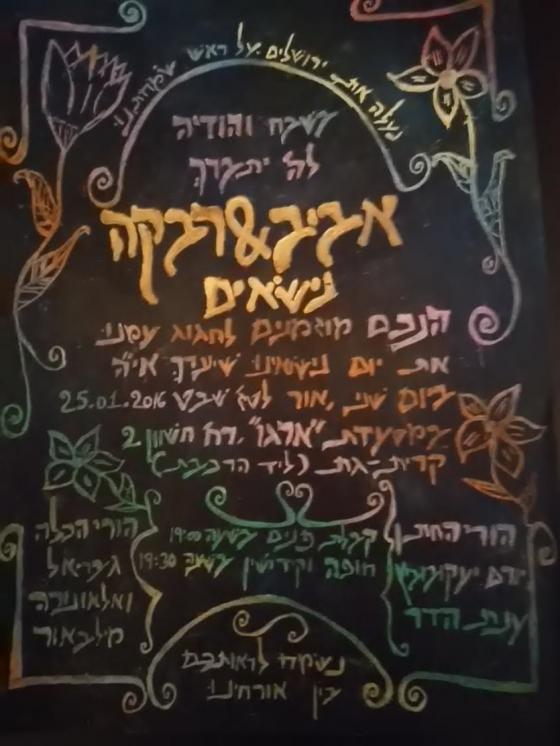 נעלה את ירושלים על ראש שמחתנו
בשבח והודיה
לה' יתברך
אביב & רבקה
נישאים
הנכם מוזמנים לחגוג עמנו
את יום נישואינו שיערך אי"ה
ביום שני, אור לט"ז שבט 25.01.2016
במסעדת "ארגו", רח' חשוון 2
קרית-גת (ליד הרכבת)
קבלת פנים בשעה 19:00
חופה וקידושין בשעה 19:30
הורי החתן
יורם יעקובוביץ
ענת הדר
הורי הכלה
גבריאל
ואלאונורה
מילבאור
נשמח לראותכם
בין אורחינו